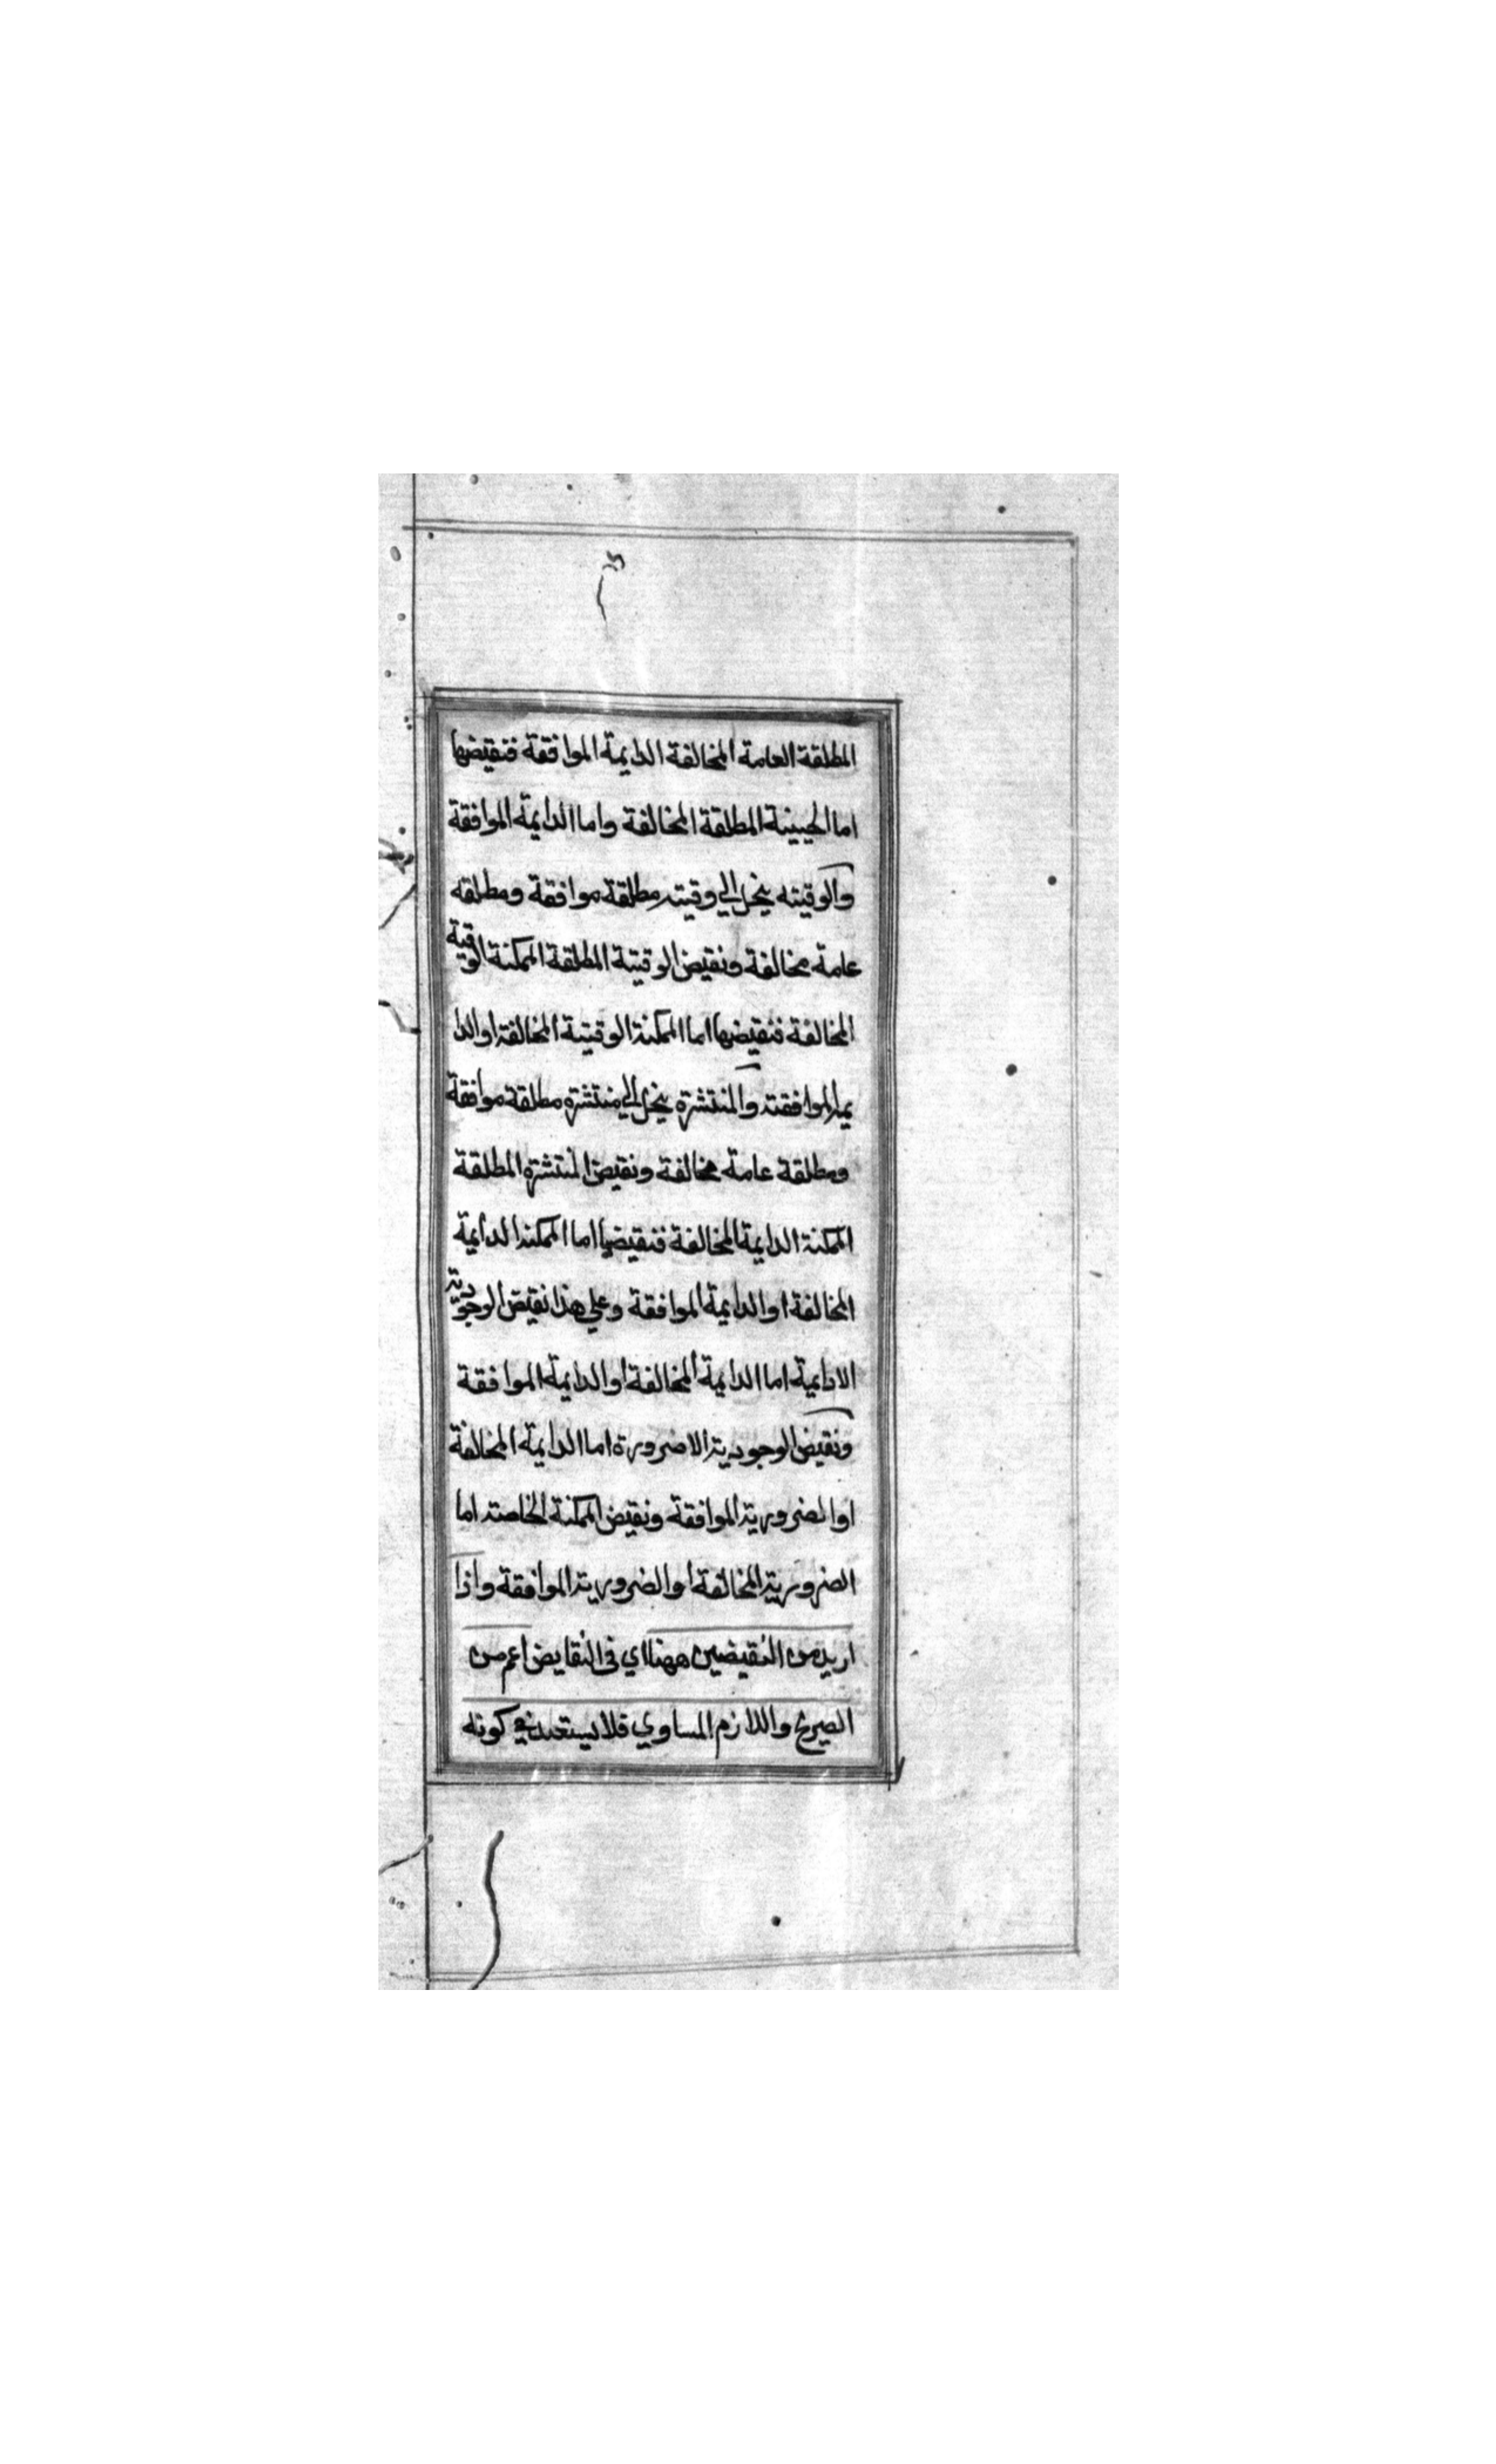 المطلقة العامة المخالفة الدايمة الموافقة فنقيضها
اما الحينية المطلقة المخالفة واما الدايمة الموافقة
والوقيته ينحل الي وقيته مطلقة موافقة ومطلقه
عامة مخالفة ونقيض الوقتية المطلقة الممكنة الوقية
المخالفة فنقيضها اما الممكنة الوقتية المخالفة او الدا
يمة الموافقته والمنتشرة ينحل الي منتشرة مطلقة موافقة
ومطلقة عامة مخالفة ونقيض المنتشرة المطلقة
الممكنة الدايمة المخالفة فنقيضها اما الممكنة الدايمة
المخالفة او الدايمة الموافقة وعلي هذا نقيض الوجودية
الادايمية اما الدايمة المخالفة او الدايمة الموافقة
ونقيض الوجودية الاضرورة اما الدايمة المخالفة
او الضرورية الموافقة ونقيض الممكنة الخاصته اما
الضرورية المخالفة او الضرورية الموافقة واذا
اريد من النقيضين ههنا اي فى النقايض اعم من
الصريح واللازم المساوي فلا يستعبد في كونه